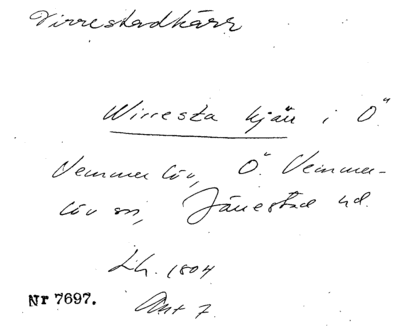 Virrestadkärr
Wirresta kjärr i Ö
Vemmerlöv, Ö. Vemmer-
löv sn, Järrestad hd.
Lh. 1804
Akt 7
Nr 7697.